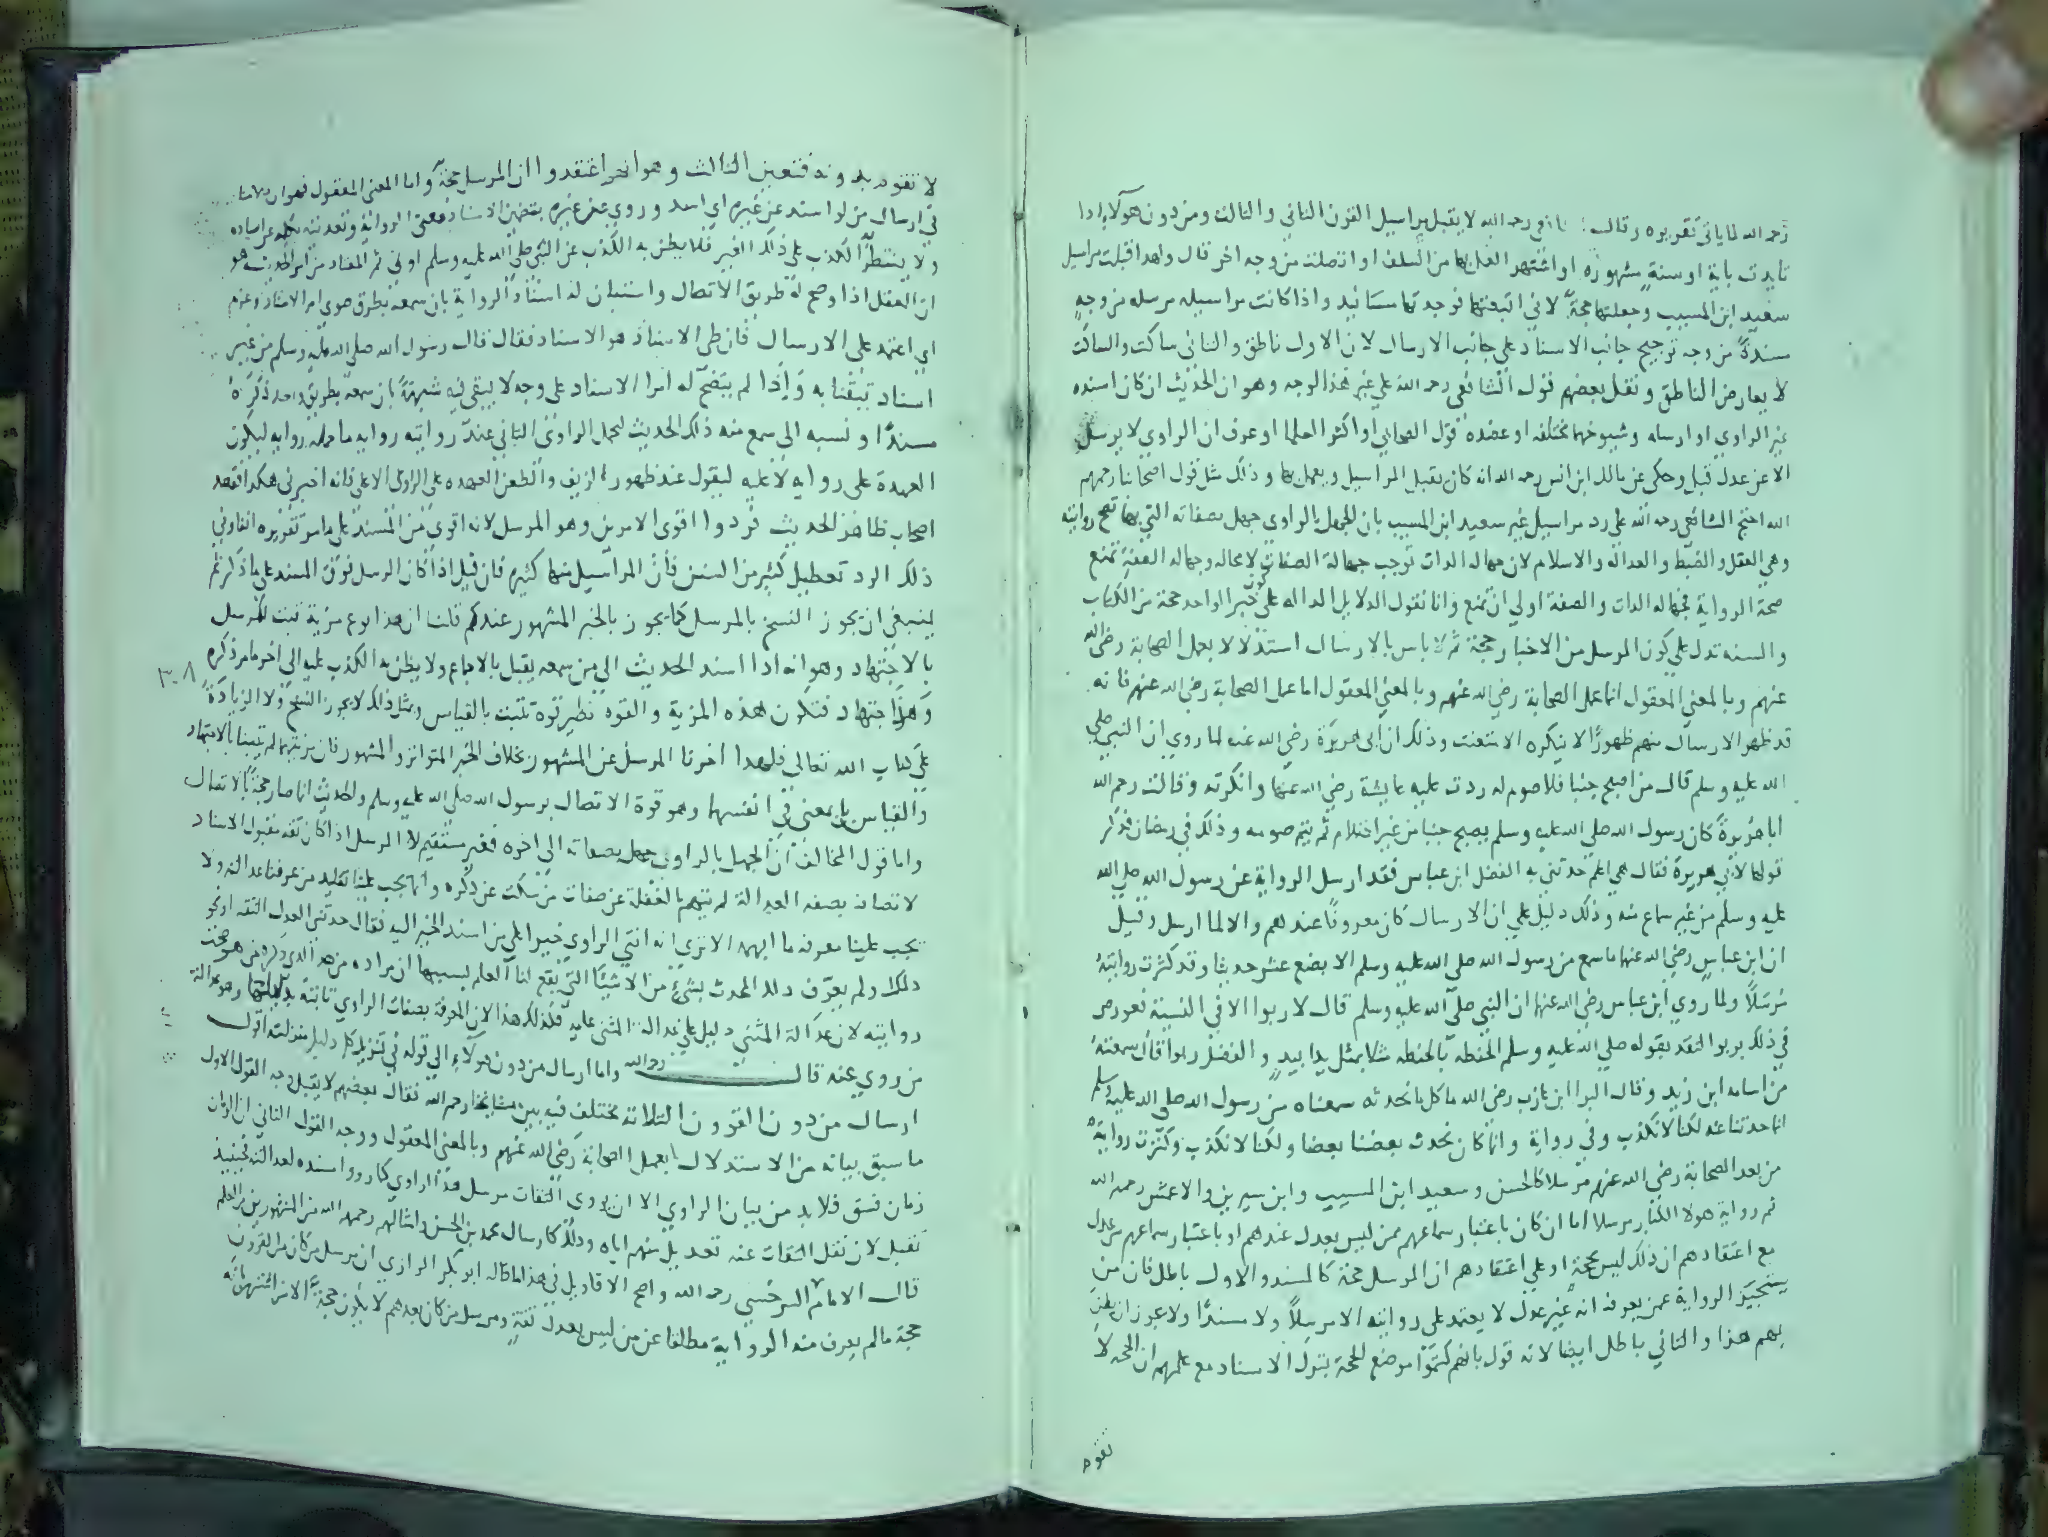 رحمه الله لما ياتي تقريره وقال الشافعي رحمه الله لا يقبل مراسيل القرن الثاني والثالث ومن دون هولاء اذا
تايدت باية او سنة مشهورة او اشتهر العمل بها من السلف او اتصلت من وجه اخر قال ولهذا قبلت مراسيل
سعيد ابن المسيب وجعلتها حجة لاني اتبعتها فوجدتها مسانيد واذا كانت مراسيله مرسله من وجه
مسندة من وجه ترجيح جانب الاسناد على جانب الارسال لان الاول ناطق والثاني ساكت والساكت
لا يعارض الناطق ونقل بعضهم قول الشافعي رحمه الله على غير هذا الوجه وهو ان الحديث ان كان اسنده
غير الراوي او ارسله وشيوخهما مختلفه او عضده قول الصحابي او اكثر العلما او عرف ان الراوي لا يرسل
الا عن عدل قبل وحكى عن مالك ابن انس رحمه الله انه كان يقبل المراسيل ويعمل بها وذلك مثل قول اصحابنا رحمهم
الله احتج الشافعي رحمه الله على رد مراسيل غير سعيد ابن المسيب بان الجهل بالراوي جهل بصفاته التي بها تصح روايته
وهي العقل والضبط والعداله والاسلام لان جهاله الذات توجب جهالة الصفات لا محاله وجهاله الصفة تمنع
صحة الرواية فجهاله الذات والصفة اولى ان تمنع وانا نقول الدلايل الداله على كون خبر الواحد حجة من الكتاب
والسنه تدل على كون المرسل من الاخبار حجة ثم لا باس بالارسال استدلالا بعمل الصحابة رضي الله
عنهم وبالمعنى المعقول اما عمل الصحابة رضي الله عنهم وبالمعنى المعقول اما عمل الصحابة رضي الله عنهم فانه
قد ظهر الارسال منهم ظهورا لا ينكره الا متعنت وذلك ان ابي هريرة رضي الله عنه لما روي ان النبي صلى
الله عليه وسلم قال من اصبح جنبا فلا صوم له ردت عليه عايشة رضي الله عنها وانكرته وقالت رحم الله
ابا هريرة كان رسول الله صلى الله عليه وسلم يصبح جنبا من غير احتلام ثم يتم صومه وذلك في رمضان فذكر
قولها لابي هريرة فقال هي اعلم حدثني به الفضل ابن عباس فقد ارسل الرواية عن رسول الله صلى الله
عليه وسلم من غير سماع منه وذلك دليل على ان الارسال كان معروفا عندهم والا لما ارسل وقيل
ان ابن عباس رضي الله عنهما ما سمع من رسول الله صلى الله عليه وسلم الا بضع عشر حديثا وقد كثرت روايته
مرسلا ولما روي ابن عباس رضي الله عنهما ان النبي صلى الله عليه وسلم قال لا ربوا الا في النسية فعورض
في ذلك بربوا النقد بقوله صلى الله عليه وسلم الحنطه بالحنطه مثلا بمثل يدا بيد والفضل ربوا قال سمعته
من اسامه ابن زيد وقال البرا ابن عازب رضي الله ما كل ما نحدثه سمعناه من رسول الله صلى الله عليه وسلم
انما حدثنا عنه لكنا لا نكذب وفي رواية وانما كان يحدث بعضنا بعضا ولكنا لا نكذب وكثرت رواية
من بعد الصحابة رضي الله عنهم مرسلا كالحسن وسعيد ابن المسيب وابن سيرين والاعمش رحمه الله
ثم رواية هولا الكبار مرسلا اما ان كان باعتبار سماعهم ممن ليس بعدل عندهم او باعتبار سماعهم من عدل
مع اعتقادهم ان ذلك ليس بحجة او على اعتقادهم ان المرسل حجة كالمسند والاول باطل فان من
يستجيز الرواية عمن يعرفه انه غير عدل لا يعتمد على روايته لا مرسلا ولا مسندا ولا يجوز ان يظن
بهم هذا والثاني باطل ايضا لانه قول بانهم كتموا موضع الحجة بترك الاسناد مع علمهم ان الحجة لا
تقوم
لا تقوم بدونه فتعين الثالث وهو انهم اعتقدوا ان المرسل حجة واما المعنى المعقول فهو ان كلامنا
في ارسال من لو اسند عن غيره اي اسند وروي عن غيره بتضمين الاسناد معنى الرواية وتعديته بكلمة عن اسناده
ولا يظن الكذب على ذلك الغير فلا يظن به الكذب عن النبي صلى الله عليه وسلم اولى ثم المعتاد من امر الحديث هو
ان العقل اذا وضح له طريق الاتصال واستبان له اسناد الرواية بان سمعه بطرق طوى امر الاسناد وعزم
اي اعتمد على الارسال فان طى الاسناد هو الاسناد فقال قال رسول الله صلى الله عليه وسلم من غير
اسناد تيقنا به واذا لم يتضح له امر الاسناد على وجه لا يبقى فيه شبهة بان سمعه بطريق واحد ذكره
مسندا ونسبه الى سمع منه ذلك الحديث ليحمل الراوي الثاني عند روايته روايه ما حمله روايه ليكون
العهدة على روايه لا عليه ليقول عند ظهور الزيف والطعن العهده على الراوي الاعلى فانه اخبرني هكذا فقصد
اصحاب ظاهر الحديث فردوا اقوى الامرين وهو المرسل لانه اقوى من المسند على ما مر تقريره انفا وفي
ذلك الرد تعطيل كثير من السنن فان المراسيل منها كثيرة فان قيل اذا كان المرسل فوق المسند على ما ذكرتم
ينبغي ان يجوز النسخ بالمرسل كما يجوز بالخبر المشهور عندكم قلنا ان هذا نوع مزية ثبت للمرسل
بالاجتهاد وهو انه اذا اسند الحديث الى من سمعه يقبل بالاجماع ولا يظن به الكذب عليه الى اخر ما مر ذكره
٣٠٨
وهذا اجتهاد فتكون هذه المزية والقوه نظير قوة تثبت بالقياس وبمثل ذلك لا يجوز النسخ ولا الزيادة
على كتاب الله تعالى فلهذا اخرنا المرسل عن المشهور بخلاف الخبر المتواتر والمشهور فان مزيتهما لم تثبتا بالاجتهاد
والقياس بل بمعنى في انفسهما وهو قوة الاتصال برسول الله صلى الله عليه وسلم والحديث انما صار حجة بالاتصال
واما قول المخالف ان الجهل بالراوي جهل بصفاته الى اخره فغير مستقيم لان المرسل اذا كان ثقه مقبول الاسناد
لاتصافه بصفه العدالة لم يتهم بالغفلة عن صفات من سكت عن ذكره وانما يجب علينا تقليد من عرفنا عدالته ولا
يجب علينا معرفه ما ابهمه الا ترى انه اثنى الراوي خيرا على من اسند الخبر اليه فقال حدثني العدل الثقه او نحو
ذلك ولم يعرف ذلك المحدث بشيء من الاشيا التي يقع لنا العلم بسببها ان مراده من هذا الذي ذكره من هو صحت
روايته لان عدالة المثني دليل على عدالة المثنى عليه فكذلك هذا لان المعرفة بصفات الراوي ثابتة وهو عدالة
من روي عنه قال رحمه الله واما ارسال من دون هولاء الى قوله في تنزيل كل دليل منزلته اقول
ارسال من دون القرون الثلاثة مختلف فيه بين مشايخنا رحمه الله فقال بعضهم لا يقبل وجه القول الاول
ما سبق بيانه من الاستدلال بعمل الصحابة رضي الله عنهم وبالمعنى المعقول ووجه القول الثاني ان الزمان
زمان فسق فلا بد من بيان الراوي الا ان يروي الثقات مرسل هذا الراوي كما رووا مسنده لعدالته فحينئذ
تقبل لان نقل الثقات عنه تعديل منهم اياه وذلك كارسال محمد بن الحسن وامثالهم رحمهم الله من المشهورين بالعلم
قال الامام السرخسي رحمه الله واصح الاقاويل في هذا ما قاله ابو بكر الرازي ان مرسل من كان من القرون
حجة ما لم يعرف منه الرواية مطلقا عن من ليس بعدل ثقة ومرسل من كان بعدهم لا يكون حجة الا من اشتهر بانه